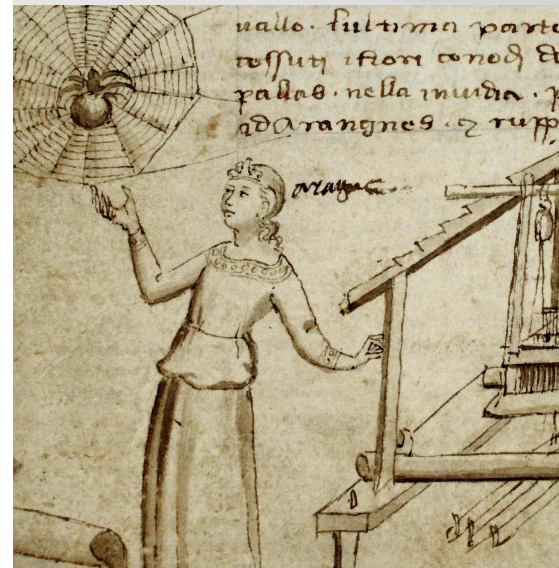 uallo. lultima parte
tessuti i fiori conod di
pallas. nella inuidia.
ad Arangnes. rupp
aragne